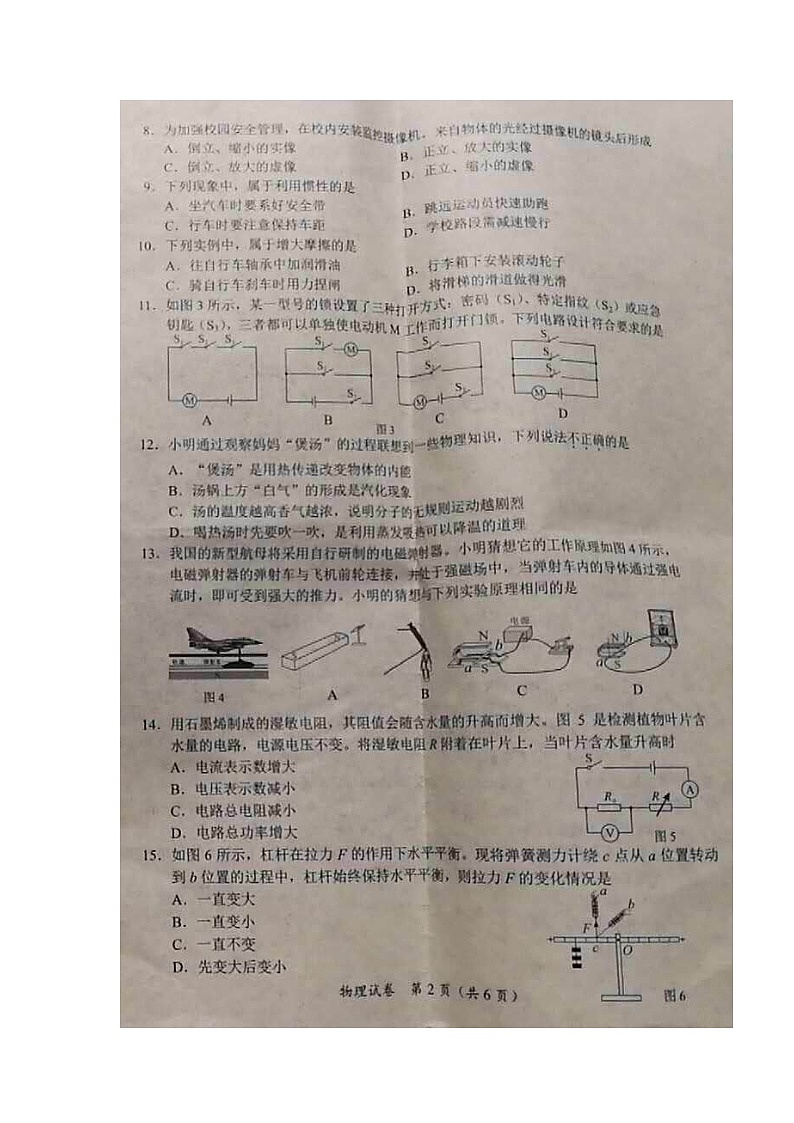 8．为加强校园安全管理，在校内安装监控摄像机，来自物体的光经过摄像机的镜头后形成
A．倒立、缩小的实像 B．正立、放大的实像
C．倒立、放大的虚像 D．正立、缩小的虚像
9．下列现象中，属于利用惯性的是
A．坐汽车时要系好安全带 B．跳远运动员快速助跑
C．行车时要注意保持车距 D．学校路段需减速慢行
10．下列实例中，属于增大摩擦的是
A．往自行车轴承中加润滑油 B．行李箱下安装滚动轮子
C．骑自行车刹车时用力捏闸 D．将滑梯的滑道做得光滑
11．如图3所示，某一型号的锁设置了三种打开方式：密码（S₁）、特定指纹（S₂）或应急
钥匙（S₃），三者都可以单独使电动机M工作而打开门锁。下列电路设计符合要求的是
A B C D
图3
12．小明通过观察妈妈“煲汤”的过程联想到一些物理知识，下列说法不正确的是
A．“煲汤”是用热传递改变物体的内能
B．汤锅上方“白气”的形成是汽化现象
C．汤的温度越高香气越浓，说明分子的无规则运动越剧烈
D．喝热汤时先要吹一吹，是利用蒸发吸热可以降温的道理
13．我国的新型航母将采用自行研制的电磁弹射器。小明猜想它的工作原理如图4所示，
电磁弹射器的弹射车与飞机前轮连接，并处于强磁场中，当弹射车内的导体通过强电
流时，即可受到强大的推力。小明的猜想与下列实验原理相同的是
电源
N b a S
图4 A B C D
14．用石墨烯制成的湿敏电阻，其阻值会随含水量的升高而增大。图 5 是检测植物叶片含
水量的电路，电源电压不变。将湿敏电阻R附着在叶片上，当叶片含水量升高时
A．电流表示数增大
B．电压表示数减小
C．电路总电阻减小
D．电路总功率增大
S
R₀ R A
V 图5
15．如图6所示，杠杆在拉力 F 的作用下水平平衡。现将弹簧测力计绕 c 点从 a 位置转动
到 b 位置的过程中，杠杆始终保持水平平衡，则拉力 F 的变化情况是
A．一直变大
B．一直变小
C．一直不变
D．先变大后变小
a
b
F
c O
图6
物理试卷 第2页（共6页）